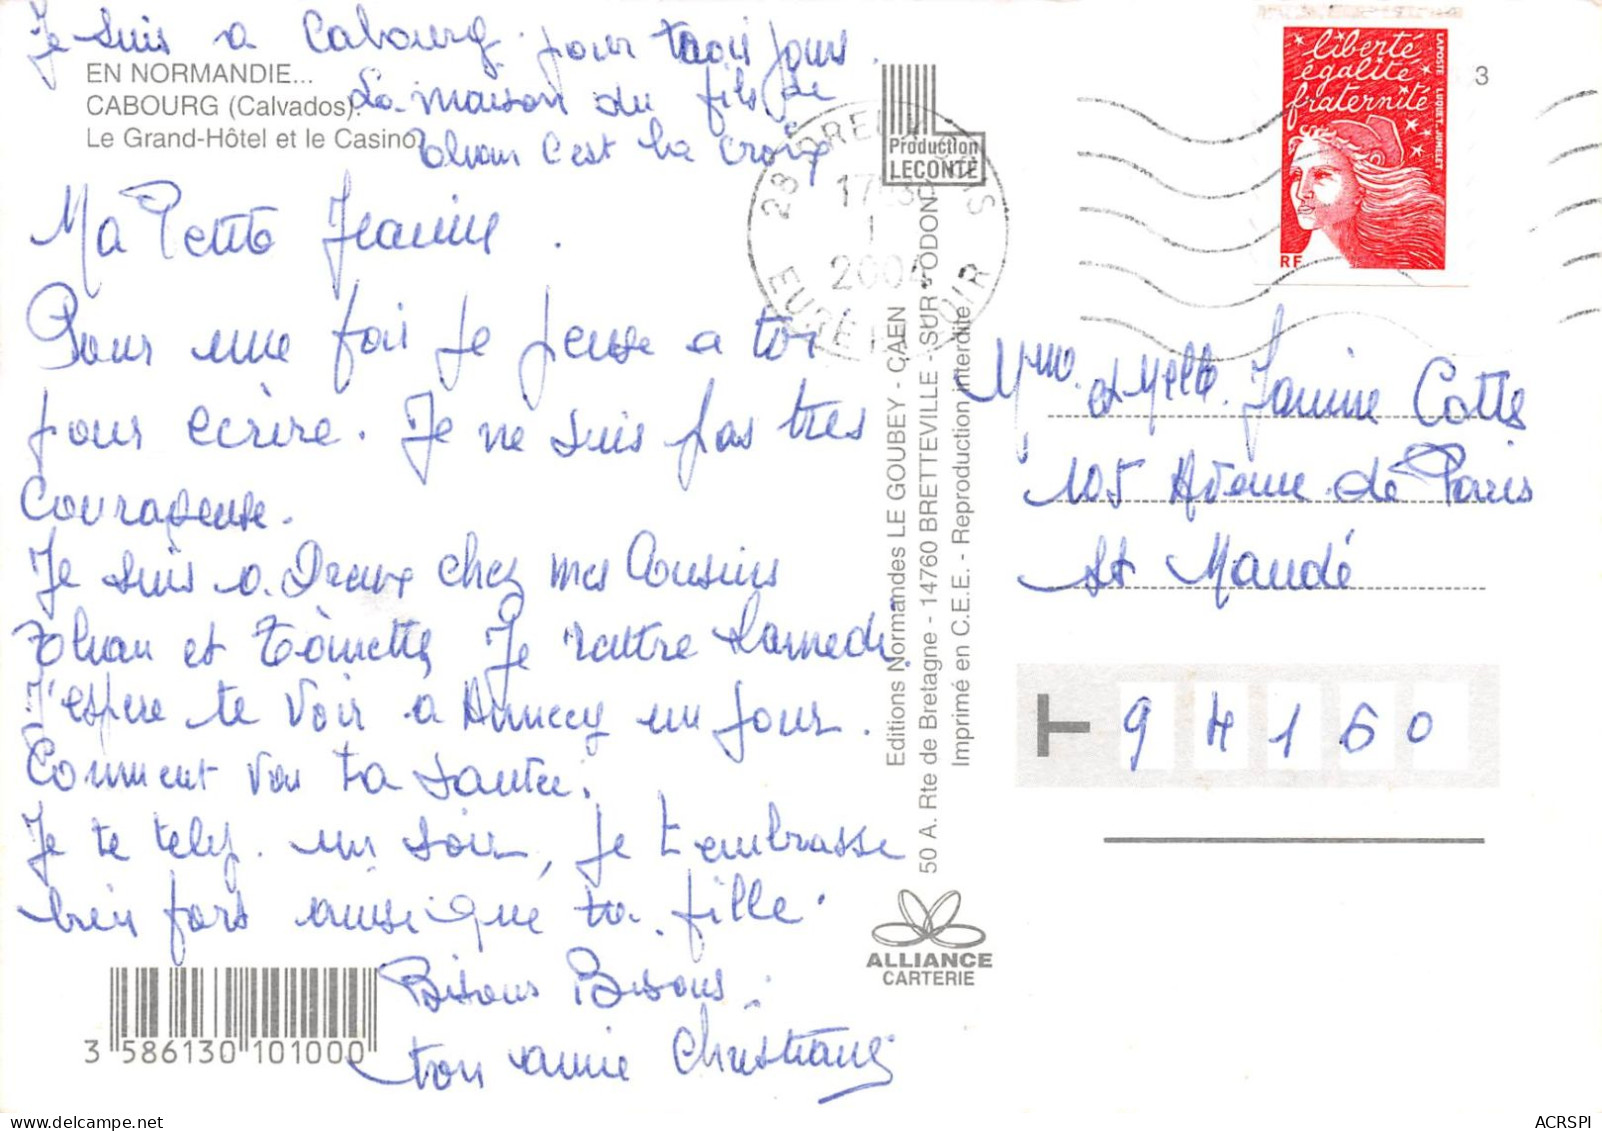 Je suis a Cabourg pour trois jours.
EN NORMANDIE...
CABOURG (Calvados).
Le Grand-Hôtel et le Casino
La maison du fils de
c'est la croix
Ma Petite Jeanine.
Pour une fois je pense a toi
pour ecrire. Je ne suis pas tres
courageuse.
Je suis a Dreux chez mes Cousins
et Toinette, Je rentre Samedi.
J'espere te voir a Annecy un jour.
Comment va ta santée.
Je te telep. un soir, je t'embrasse
bien fort ainsi que ta fille.
Bisous Bisous.
ton amie Christiane
3 586130 101000
Production
LECONTE
28 DREUX
17H30
1
2004
EURE ET LOIR
Editions Normandes LE GOUBEY - CAEN
50 A. Rte de Bretagne - 14760 BRETTEVILLE - SUR - ODON
Imprimé en C.E.E. - Reproduction interdite
ALLIANCE
CARTERIE
liberté
égalité
fraternité
RF
LA POSTE LUQUET. JUMELET
3
Mme et Melle Janine Cotte
105 Avenue de Paris
St Mandé
94160
ACRSPI
delcampe.net